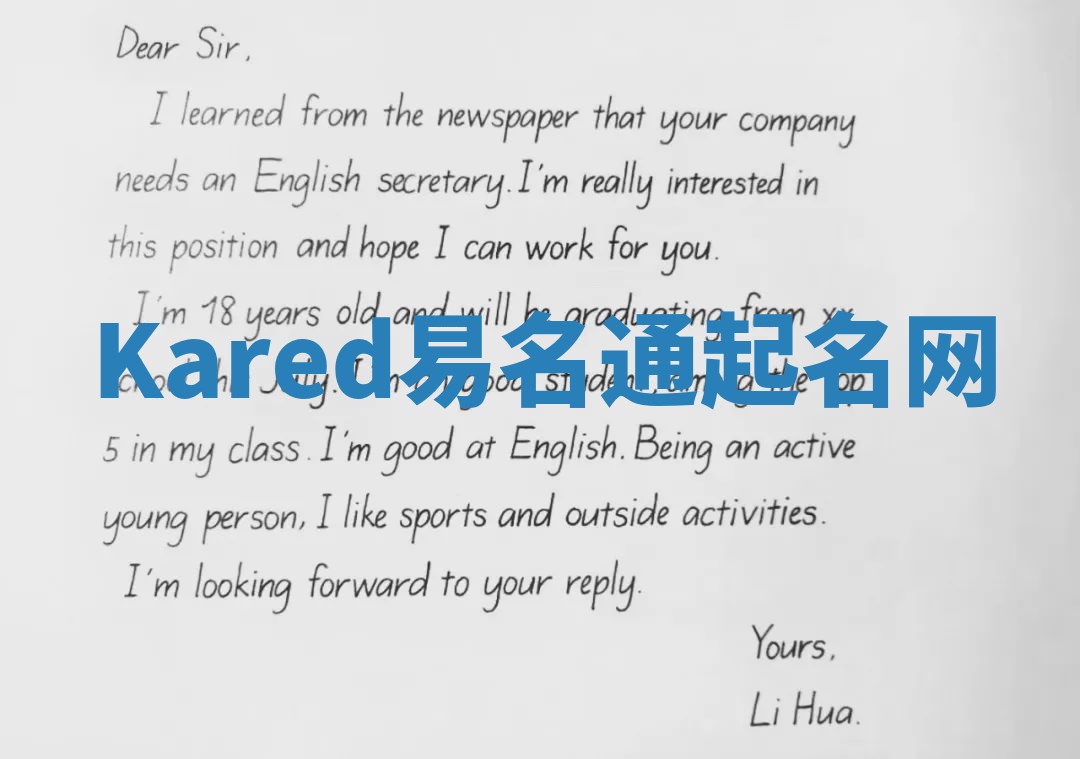 Dear Sir,
I learned from the newspaper that your company
needs an English secretary. I'm really interested in
this position and hope I can work for you.
I'm 18 years old and will be graduating from xx
Kared易名通起名网
July. I'm good student, among the top
5 in my class. I'm good at English. Being an active
young person, I like sports and outside activities.
I'm looking forward to your reply.
Yours,
Li Hua.